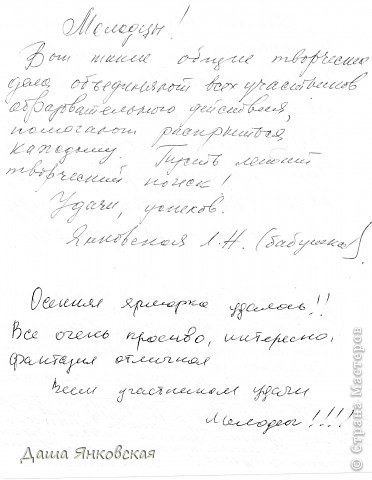 Молодцы!
Вот такие общие творческие
дела объединяют всех участников
образовательного действия,
помогают раскрыться
каждому. Пусть
творческий поиск!
Удачи, успехов.
Янковская Л.Н. (бабушка)
Осенняя ярмарка удалась!!
Все очень красиво, интересно,
фантазия отличная
Всем участникам удачи
Молодцы!!!!
Даша Янковская
© Страна Мастеров